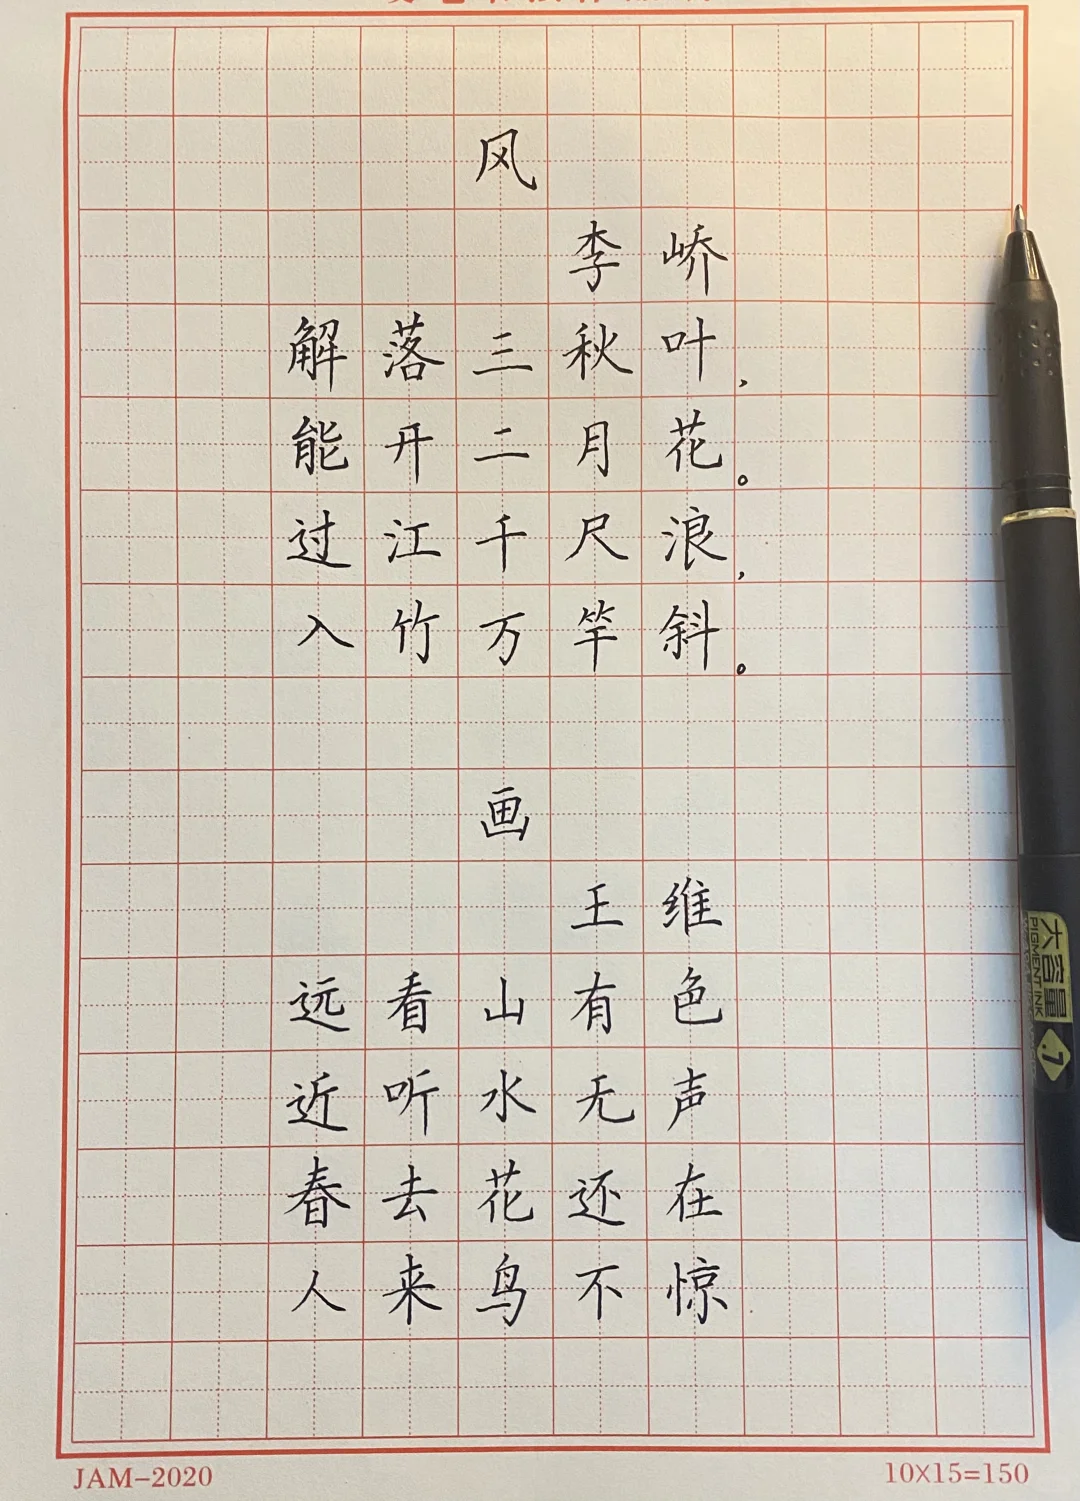 风
李峤
解落三秋叶，
能开二月花。
过江千尺浪，
入竹万竿斜。
画
王维
远看山有色
近听水无声
春去花还在
人来鸟不惊
JAM-2020
10X15=150
大容量
PIGMENT INK
.7